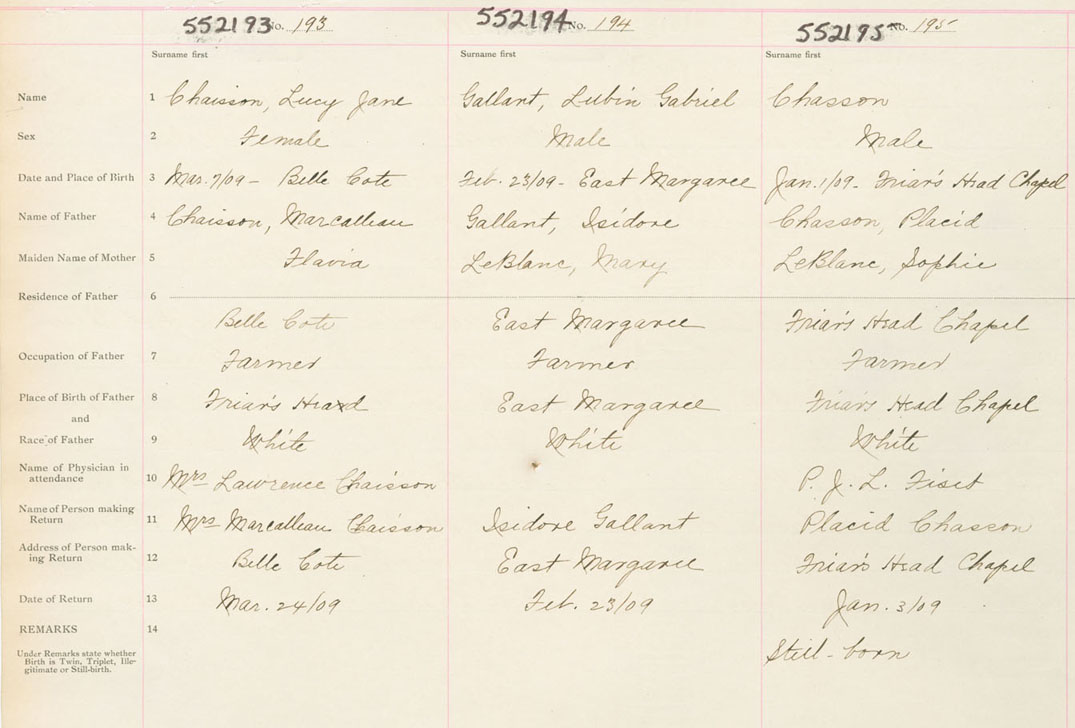 552193 No. 193 552194 No. 194 552195 No. 195
Surname first Surname first Surname first
Name 1 Chaisson, Lucy Jane Gallant, Lubin Gabriel Chasson
Sex 2 Female Male Male
Date and Place of Birth 3 Mar. 7/09 - Belle Cote Feb. 23/09 - East Margaree Jan. 1/09 - Friar's Head Chapel
Name of Father 4 Chaisson, Marcalleau Gallant, Isidore Chasson, Placid
Maiden Name of Mother 5 Flavia LeBlanc, Mary LeBlanc, Sophie
Residence of Father 6
Belle Cote East Margaree Friar's Head Chapel
Occupation of Father 7 Farmer Farmer Farmer
Place of Birth of Father 8 Friar's Head East Margaree Friar's Head Chapel
and
Race of Father 9 White White White
Name of Physician in
attendance 10 Mrs Lawrence Chaisson P. J. L. Fiset
Name of Person making
Return 11 Mrs Marcalleau Chaisson Isidore Gallant Placid Chasson
Address of Person mak-
ing Return 12 Belle Cote East Margaree Friar's Head Chapel
Date of Return 13 Mar. 24/09 Feb. 23/09 Jan. 3/09
REMARKS 14
Under Remarks state whether
Birth is Twin, Triplet, Ille-
gitimate or Still-birth.
Still-born